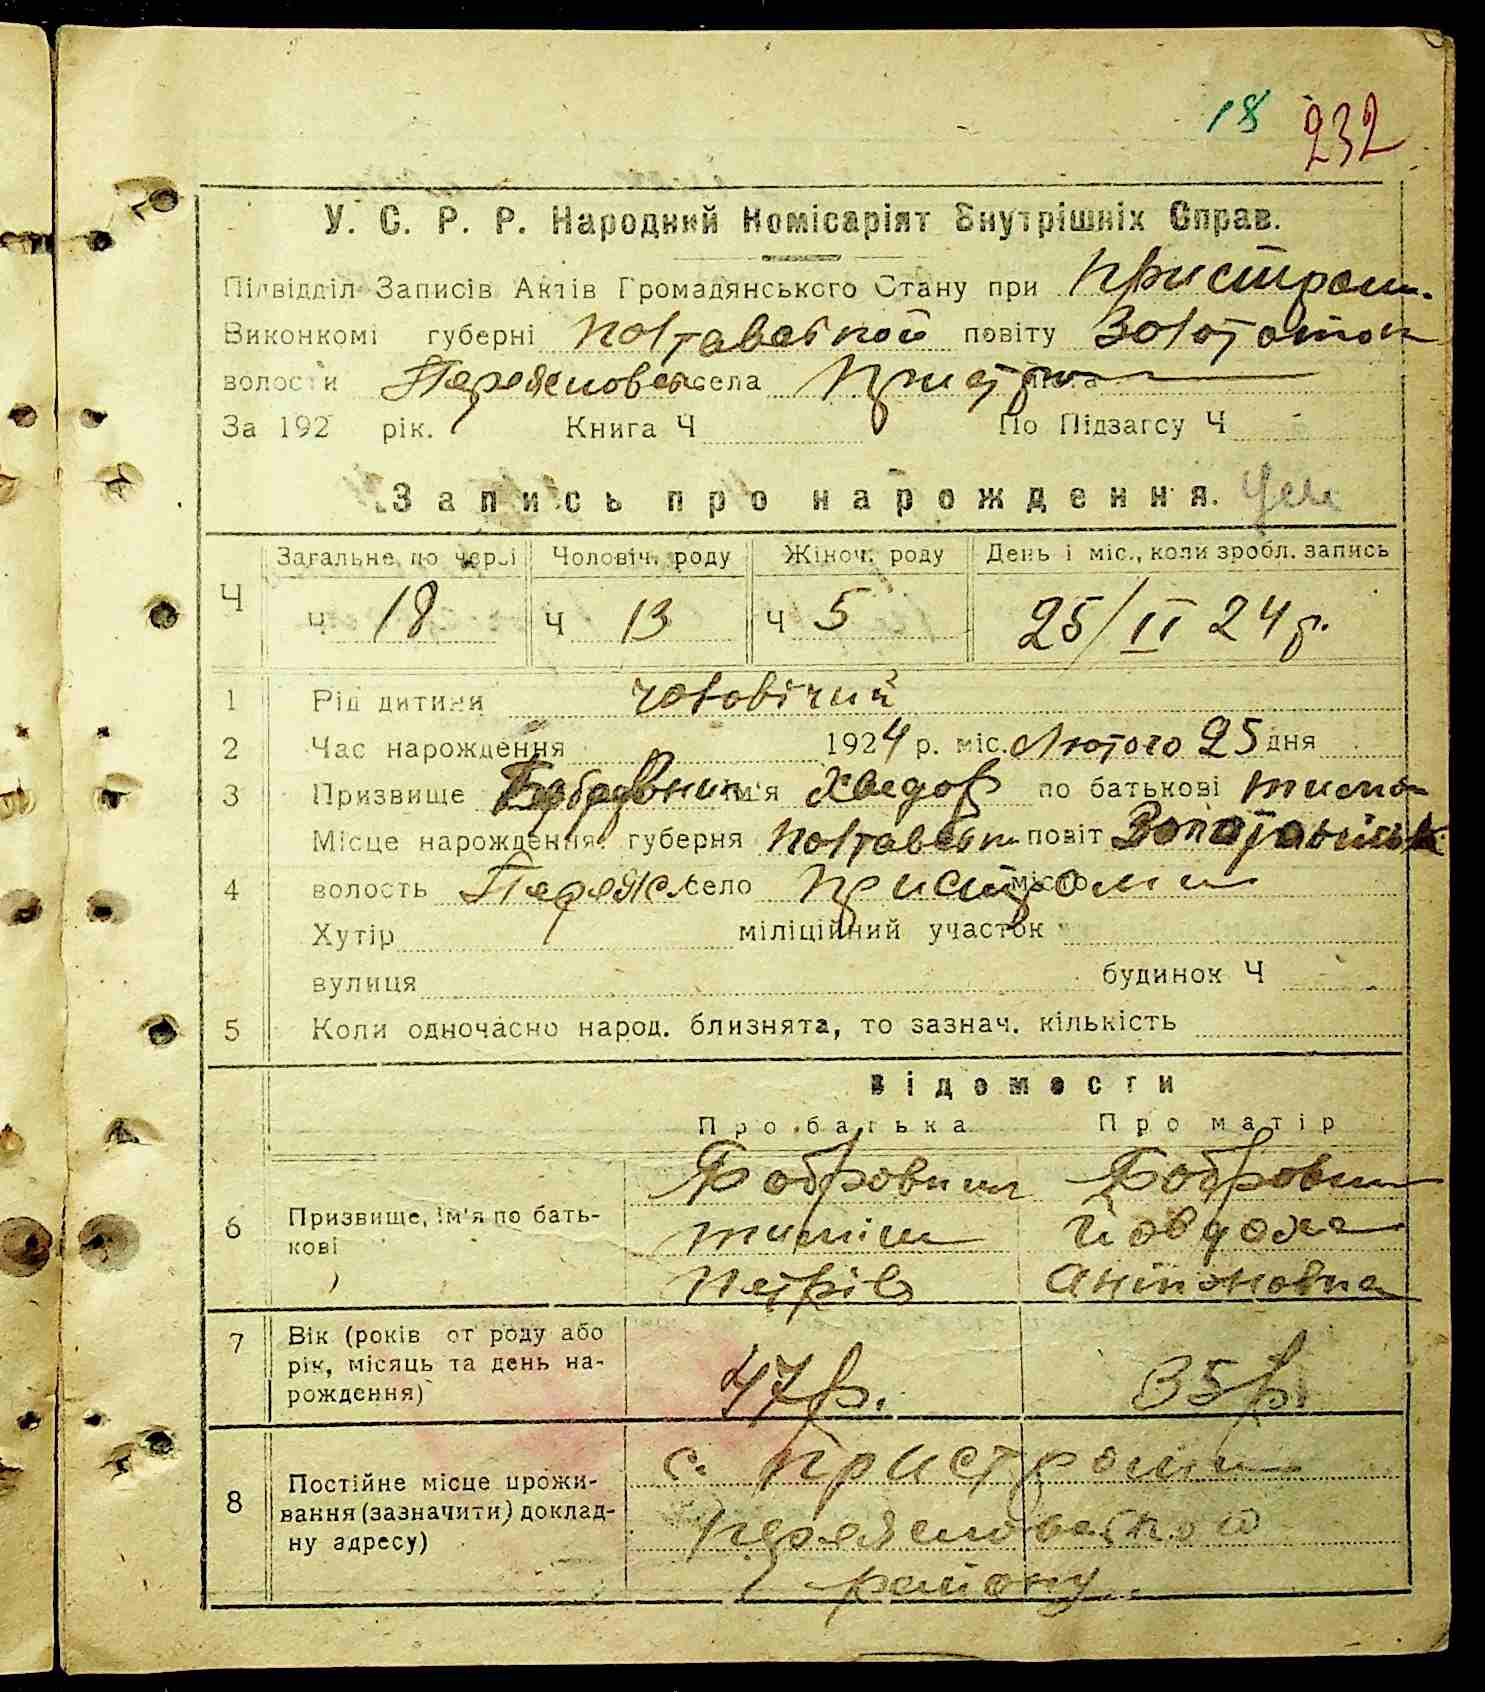 18 232
У. С. Р. Р. Народний Комісаріят Внутрішніх Справ.
Підвідділ Записів Актів Громадянського Стану при Пристром.
Виконкомі губерні Полтавської повіту Золотонош
волости Переяслов села Пристр міста
За 192 рік. Книга Ч По Підзагсу Ч
Запись про нарождення.
Загальне по черзі Чоловіч. роду Жіноч. роду День і міс., коли зробл. запись
Ч Ч 18 Ч 13 Ч 5 25/II 24 р.
1 Рід дитини чоловічий
2 Час нарождення 1924 р. міс. Лютого 25 дня
3 Призвище Бобровник ім'я Хведор по батькові Тимо
Місце нарождення: губерня Полтавськ повіт
4 волость Переясл село Пристроми місто
Хутір міліційний участок
вулиця будинок Ч
5 Коли одночасно народ. близнята, то зазнач. кількість
Відомости
Про батька Про матір
Бобровник Бобровник
6 Призвище, ім'я по бать- Тиміш Йовдоха
кові Петрів Антоновна
7 Вік (років от роду або
рік, місяць та день на- 47 р. 35 р.
рождення)
с. Пристроми
8 Постійне місце прожи-
вання (зазначити) доклад- Переясловської
ну адресу) району